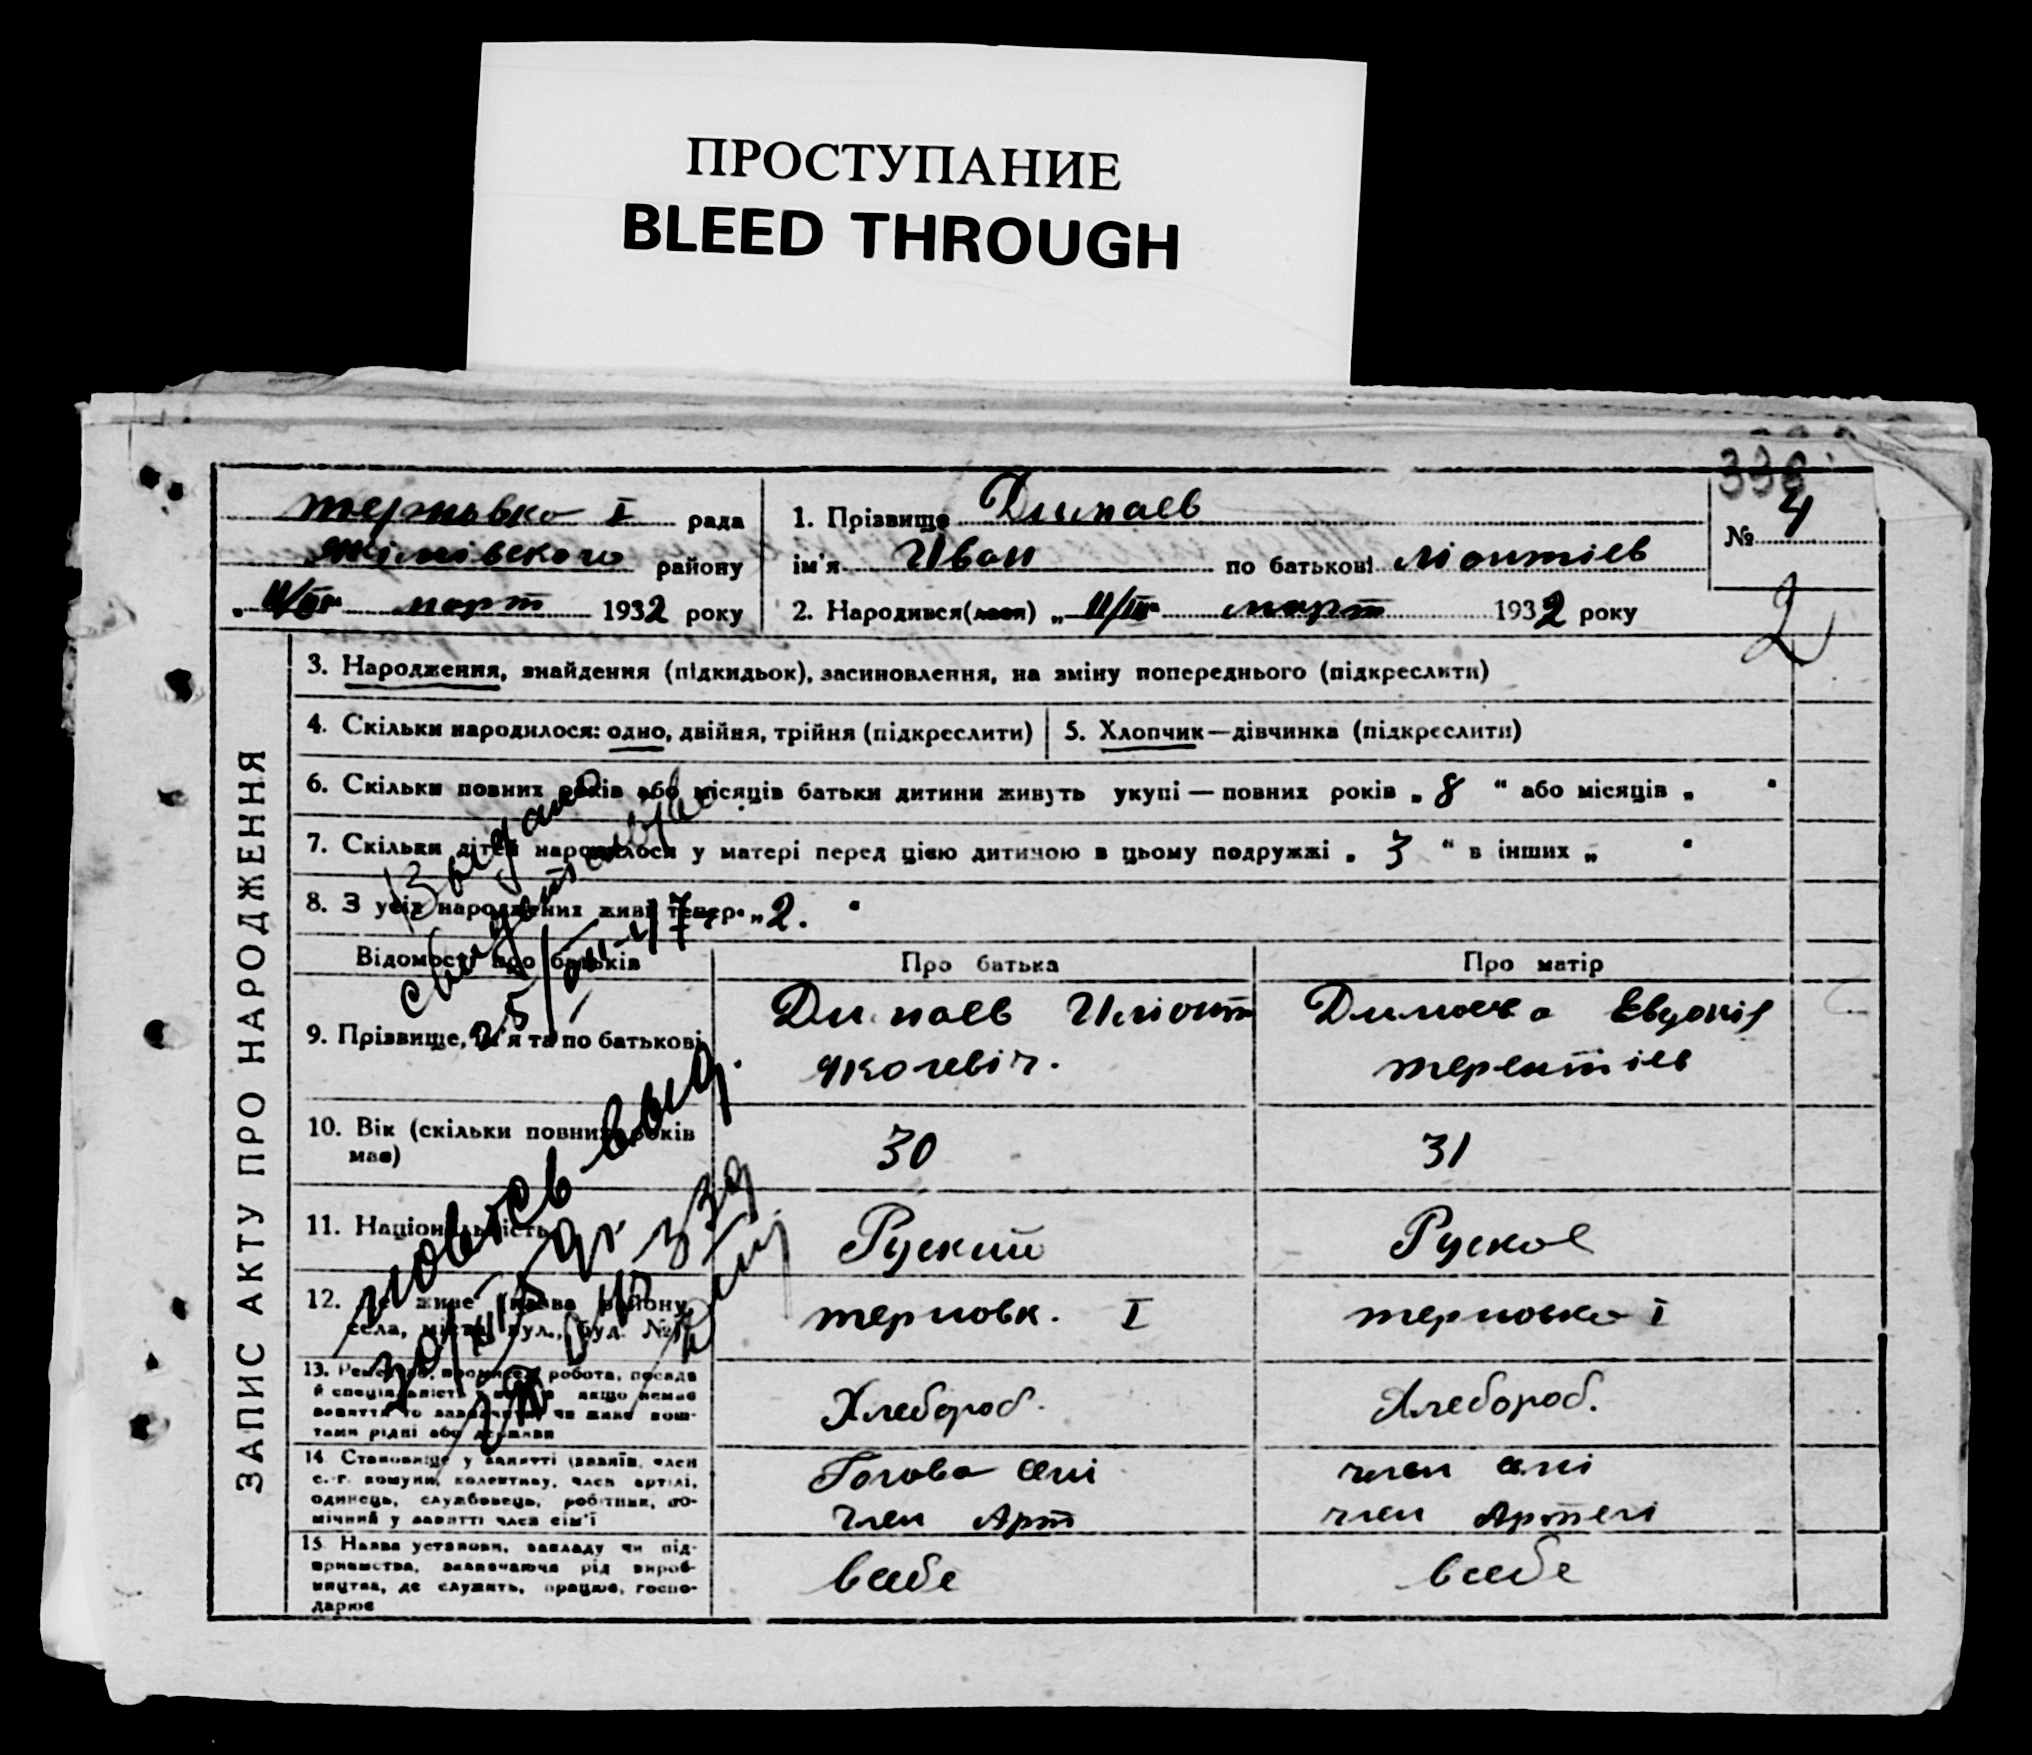 ПРОСТУПАНИЕ
BLEED THROUGH
338
терновка I рада
району
„ II/III " март 1932 року
1. Прізвище
ім'я Иван по батькові
2. Народився(лася) „ II/III " март 1932 року
№ 4
2
ЗАПИС АКТУ ПРО НАРОДЖЕННЯ
3. Народження, знайдення (підкидьок), засиновлення, на зміну попереднього (підкреслити)
4. Скільки народилося: одно, двійня, трійня (підкреслити)
5. Хлопчик—дівчинка (підкреслити)
6. Скільки повних років або місяців батьки дитини живуть укупі — повних років „ 8 “ або місяців „ "
7. Скільки дітей народилося у матері перед цією дитиною в цьому подружжі „ 3 “ в інших „ "
8. З усіх народжених живі тепер „ 2. "
Відомості про батьків
Про батька
Про матір
9. Прізвище, ім'я та по батькові
терентіев
10. Вік (скільки повних років має)
30
31
11. Національність
Руский
Руская
12. Де живе (назва району, села, міста, вул., буд. №)
терновк. I
терновка I
13. робота, посада й спеціальність якщо немає заняття то зазначити, чи живе коштами рідні або держави
Хлебороб.
Хлебороб.
14. Становище у занятті (хазяїн, член с.-г. комуни, колективу, член артілі, одинець, службовець, робітник, помічний у занятті член сім'ї
Голова сімі
член Арт
член сімі
член Артелі
15. Назва установи, закладу чи підприємства, зазначаючи рід виробництва, де служить, працює, господарює
в себе
в себе
Выдано
свидетельство